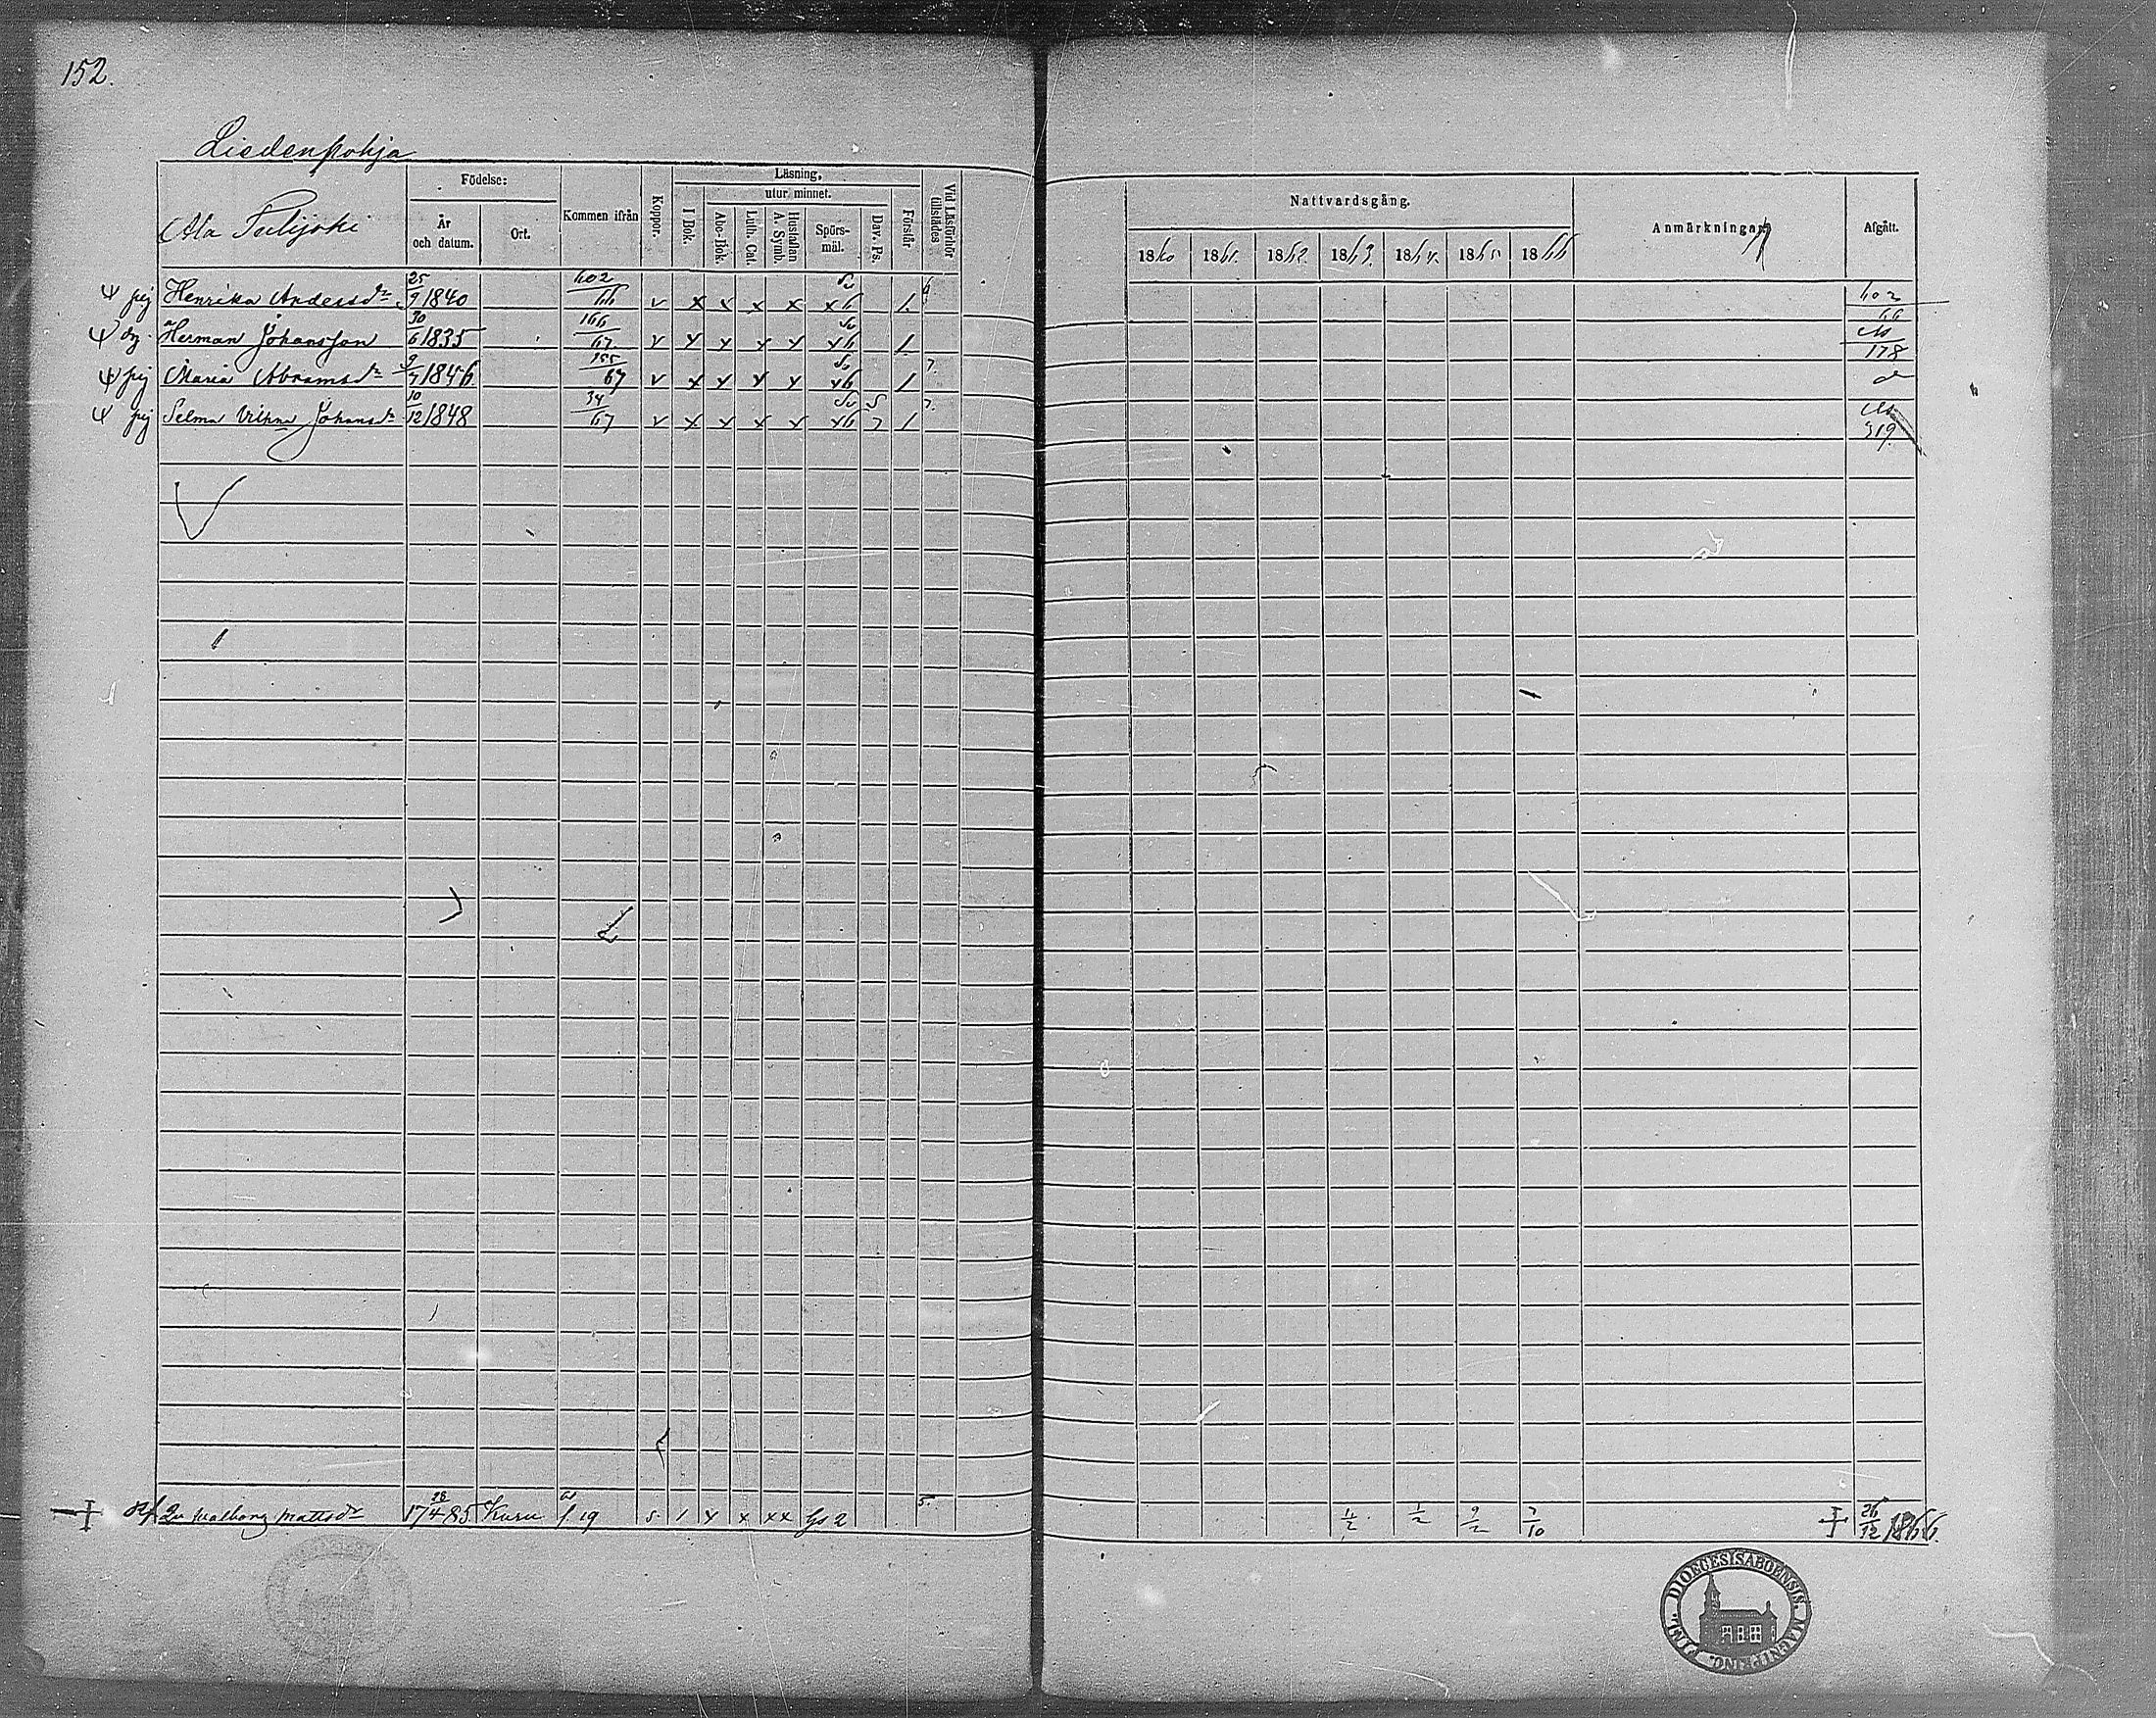 152.
Liedenpohja
Födelse:
Läsning,
utur minnet.
Ala Pulijoki
År och datum.
Ort.
Kommen ifrån
Koppor.
I Bok.
Abc-Bok.
Luth. Cat.
Hustaflan A. Symb.
Spörsmål.
Dav. Ps.
Förstår
Vid Läsförhör tillstädes
Nattvardsgång.
Anmärkningar.
Afgått.
1860 1861. 1862. 1863. 1864. 1865. 1866
pig Henrika Andersdr 25/9 1840 602/66 v x x x x x 1. 602/66
dg Herman Johansson 30/6 1835 166/67 v x x x x 1 178
pig Maria Abramsdr 9/7 1846 155/67 v x x x x 1 7.
pig Selma Vilhna Johansdr 10/12 1848 34/67 v x x x x 1 7. 319.
Valborg Mattsdr 17 28/4 85 Kuru 19 5 1 x x xx 2 5. 1/2 9/2 7/10 26/12 1866.
FINL. DIOECESIS ABOENSIS. MAGNI PRINC.